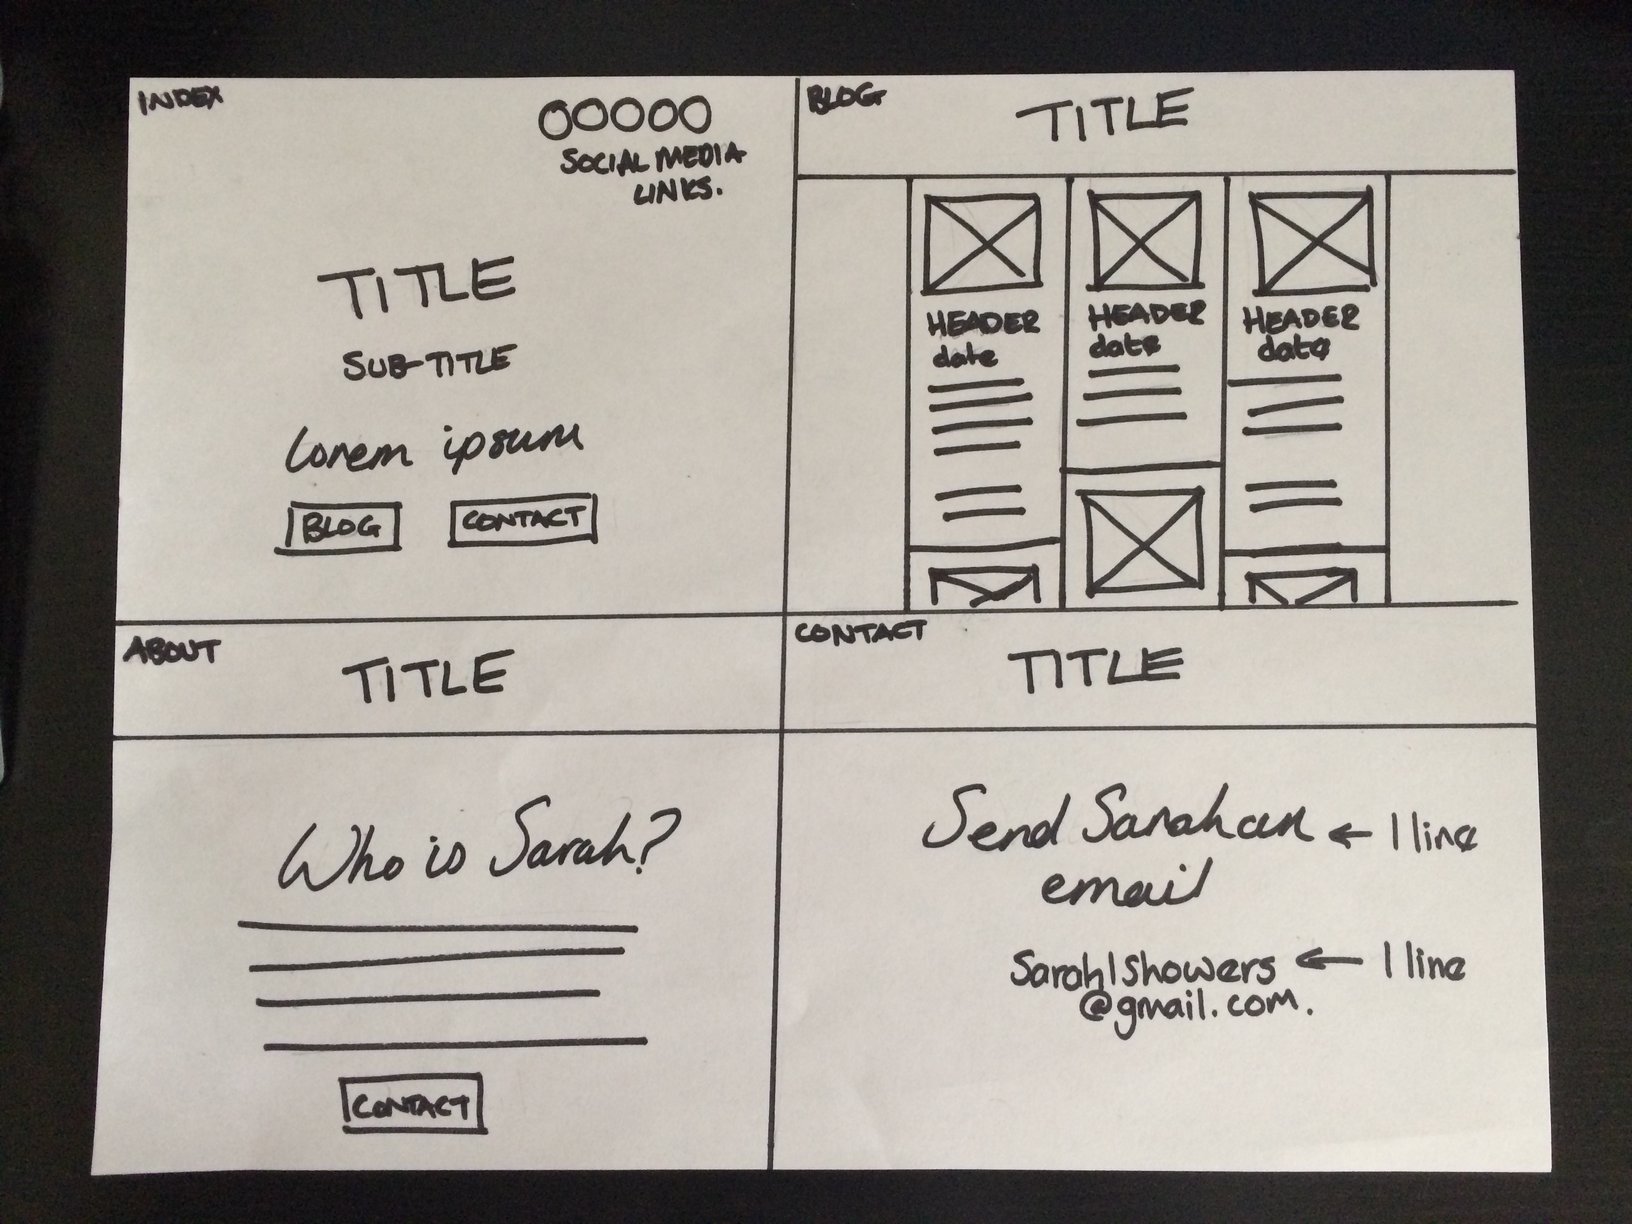 INDEX
SOCIAL MEDIA
LINKS.
TITLE
SUB-TITLE
Lorem ipsum
BLOG
CONTACT
BLOG
TITLE
HEADER
date
HEADER
date
HEADER
date
ABOUT
TITLE
Who is Sarah?
CONTACT
CONTACT
TITLE
Send Sarah an ← 1 line
email
Sarah1Showers ← 1 line
@gmail.com.